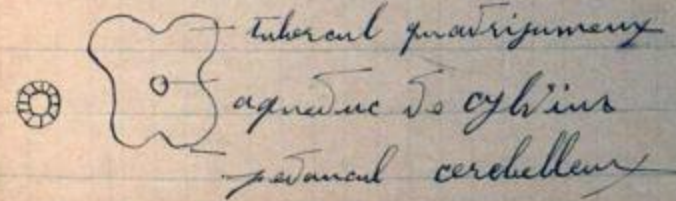 tubercul quadrijumeux
aqueduc de cylvius
pedoncul cerebelleux